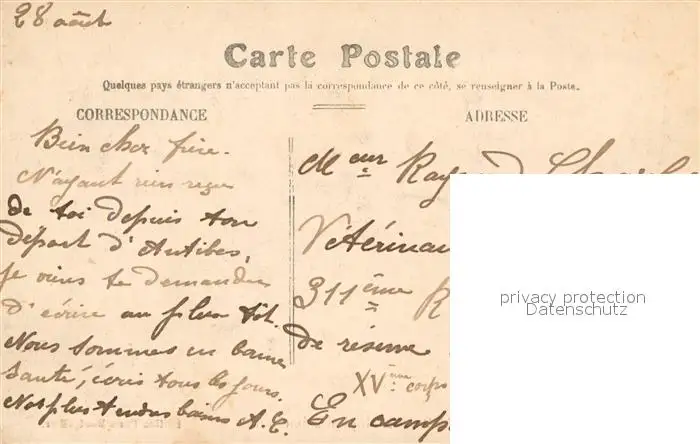 28 août
Carte Postale
Quelques pays étrangers n'acceptant pas la correspondance de ce côté, se renseigner à la Poste.
CORRESPONDANCE
ADRESSE
Bien cher frère.
N'ayant rien reçu
de toi depuis ton
départ d'Antibes,
je viens te demander
d'écrire au plus tôt.
Nous sommes en bonne
santé, écris tous les jours.
Nos plus tendres baisers A. C.
Mr
Vétérinai
311ème R
de réserve
XVème corps
En camp
privacy protection
Datenschutz